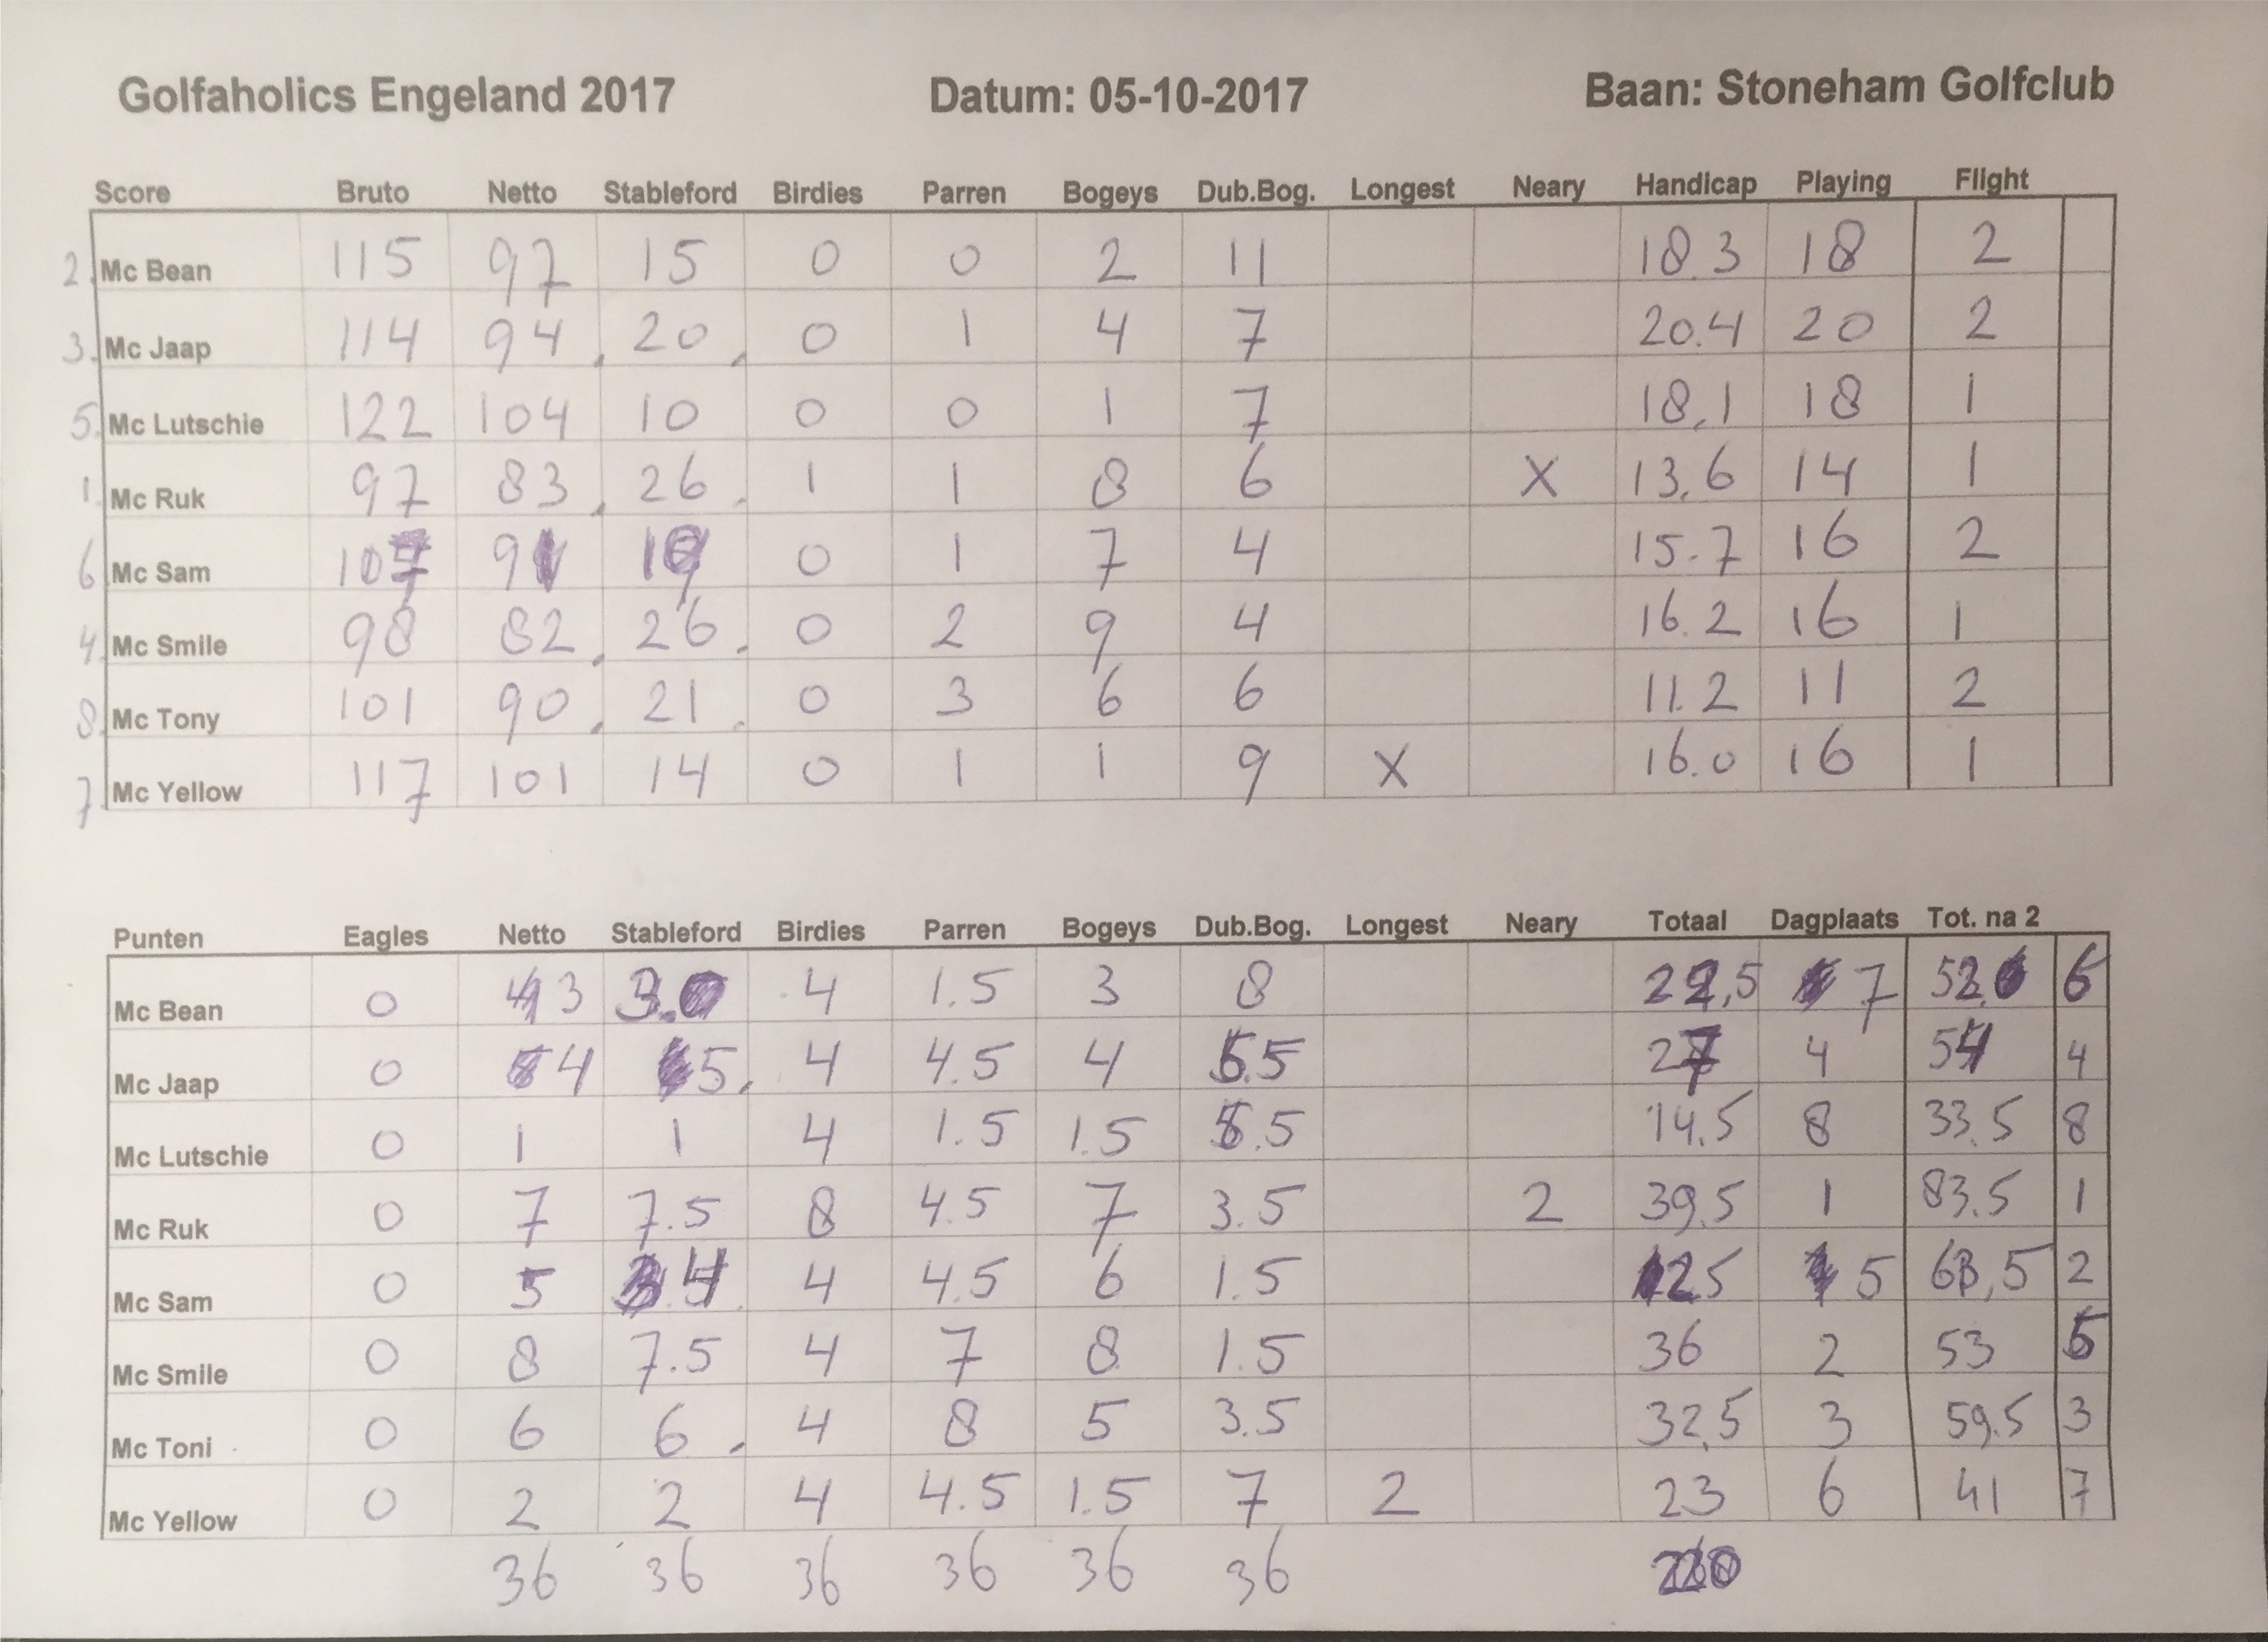 Golfaholics Engeland 2017 Datum: 05-10-2017 Baan: Stoneham Golfclub
Score Bruto Netto Stableford Birdies Parren Bogeys Dub.Bog. Longest Neary Handicap Playing Flight
2. Mc Bean 115 97 15 0 0 2 11 18.3 18 2
3. Mc Jaap 114 94 20 0 1 4 7 20.4 20 2
5. Mc Lutschie 122 104 10 0 0 1 7 18,1 18 1
1. Mc Ruk 97 83 26 1 1 8 6 X 13,6 14 1
6 Mc Sam 0 1 7 4 15.7 16 2
4. Mc Smile 98 82 26 0 2 9 4 16.2 16 1
8. Mc Tony 101 90 21 0 3 6 6 11.2 11 2
7. Mc Yellow 117 101 14 0 1 1 9 X 16.0 16 1
Punten Eagles Netto Stableford Birdies Parren Bogeys Dub.Bog. Longest Neary Totaal Dagplaats Tot. na 2
Mc Bean 0 3 4 1.5 3 8 22,5 7 6
Mc Jaap 0 4 5 4 4.5 4 5.5 27 4 4
Mc Lutschie 0 1 1 4 1.5 1.5 5.5 14.5 8 33.5 8
Mc Ruk 0 7 7.5 8 4.5 7 3.5 2 39.5 1 83.5 1
Mc Sam 0 5 4 4 4.5 6 1.5 25 5 63,5 2
Mc Smile 0 8 7.5 4 7 8 1.5 36 2 53 5
Mc Toni 0 6 6 4 8 5 3.5 32,5 3 59.5 3
Mc Yellow 0 2 2 4 4.5 1.5 7 2 23 6 41 7
36 36 36 36 36 36